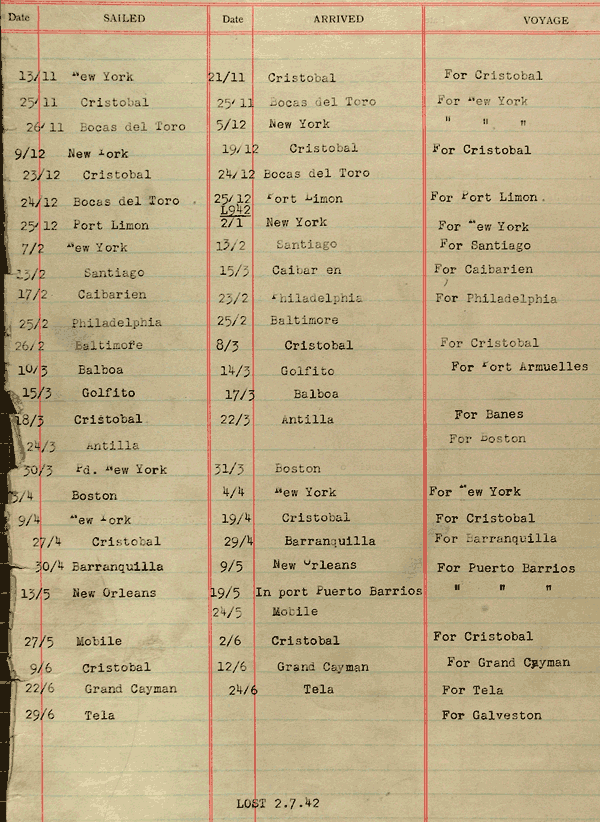 Date SAILED Date ARRIVED VOYAGE
13/11 New York 21/11 Cristobal For Cristobal
25/11 Cristobal 25/11 Bocas del Toro For New York
26/11 Bocas del Toro 5/12 New York " " "
9/12 New York 19/12 Cristobal For Cristobal
23/12 Cristobal 24/12 Bocas del Toro
24/12 Bocas del Toro 25/12 Port Limon For Port Limon.
1942
25/12 Port Limon 2/1 New York For New York
7/2 New York 13/2 Santiago For Santiago
13/2 Santiago 15/3 Caibar en For Caibarien
17/2 Caibarien 23/2 Philadelphia For Philadelphia
25/2 Philadelphia 25/2 Baltimore
26/2 Baltimore 8/3 Cristobal For Cristobal
10/3 Balboa 14/3 Golfito For Port Armuelles
15/3 Golfito 17/3 Balboa
18/3 Cristobal 22/3 Antilla For Banes
24/3 Antilla For Boston
30/3 Pd. New York 31/3 Boston
3/4 Boston 4/4 New York For New York
9/4 New York 19/4 Cristobal For Cristobal
27/4 Cristobal 29/4 Barranquilla For Barranquilla
30/4 Barranquilla 9/5 New Orleans For Puerto Barrios
13/5 New Orleans 19/5 In port Puerto Barrios " " "
24/5 Mobile
27/5 Mobile 2/6 Cristobal For Cristobal
9/6 Cristobal 12/6 Grand Cayman For Grand Cayman
22/6 Grand Cayman 24/6 Tela For Tela
29/6 Tela For Galveston
LOST 2.7.42